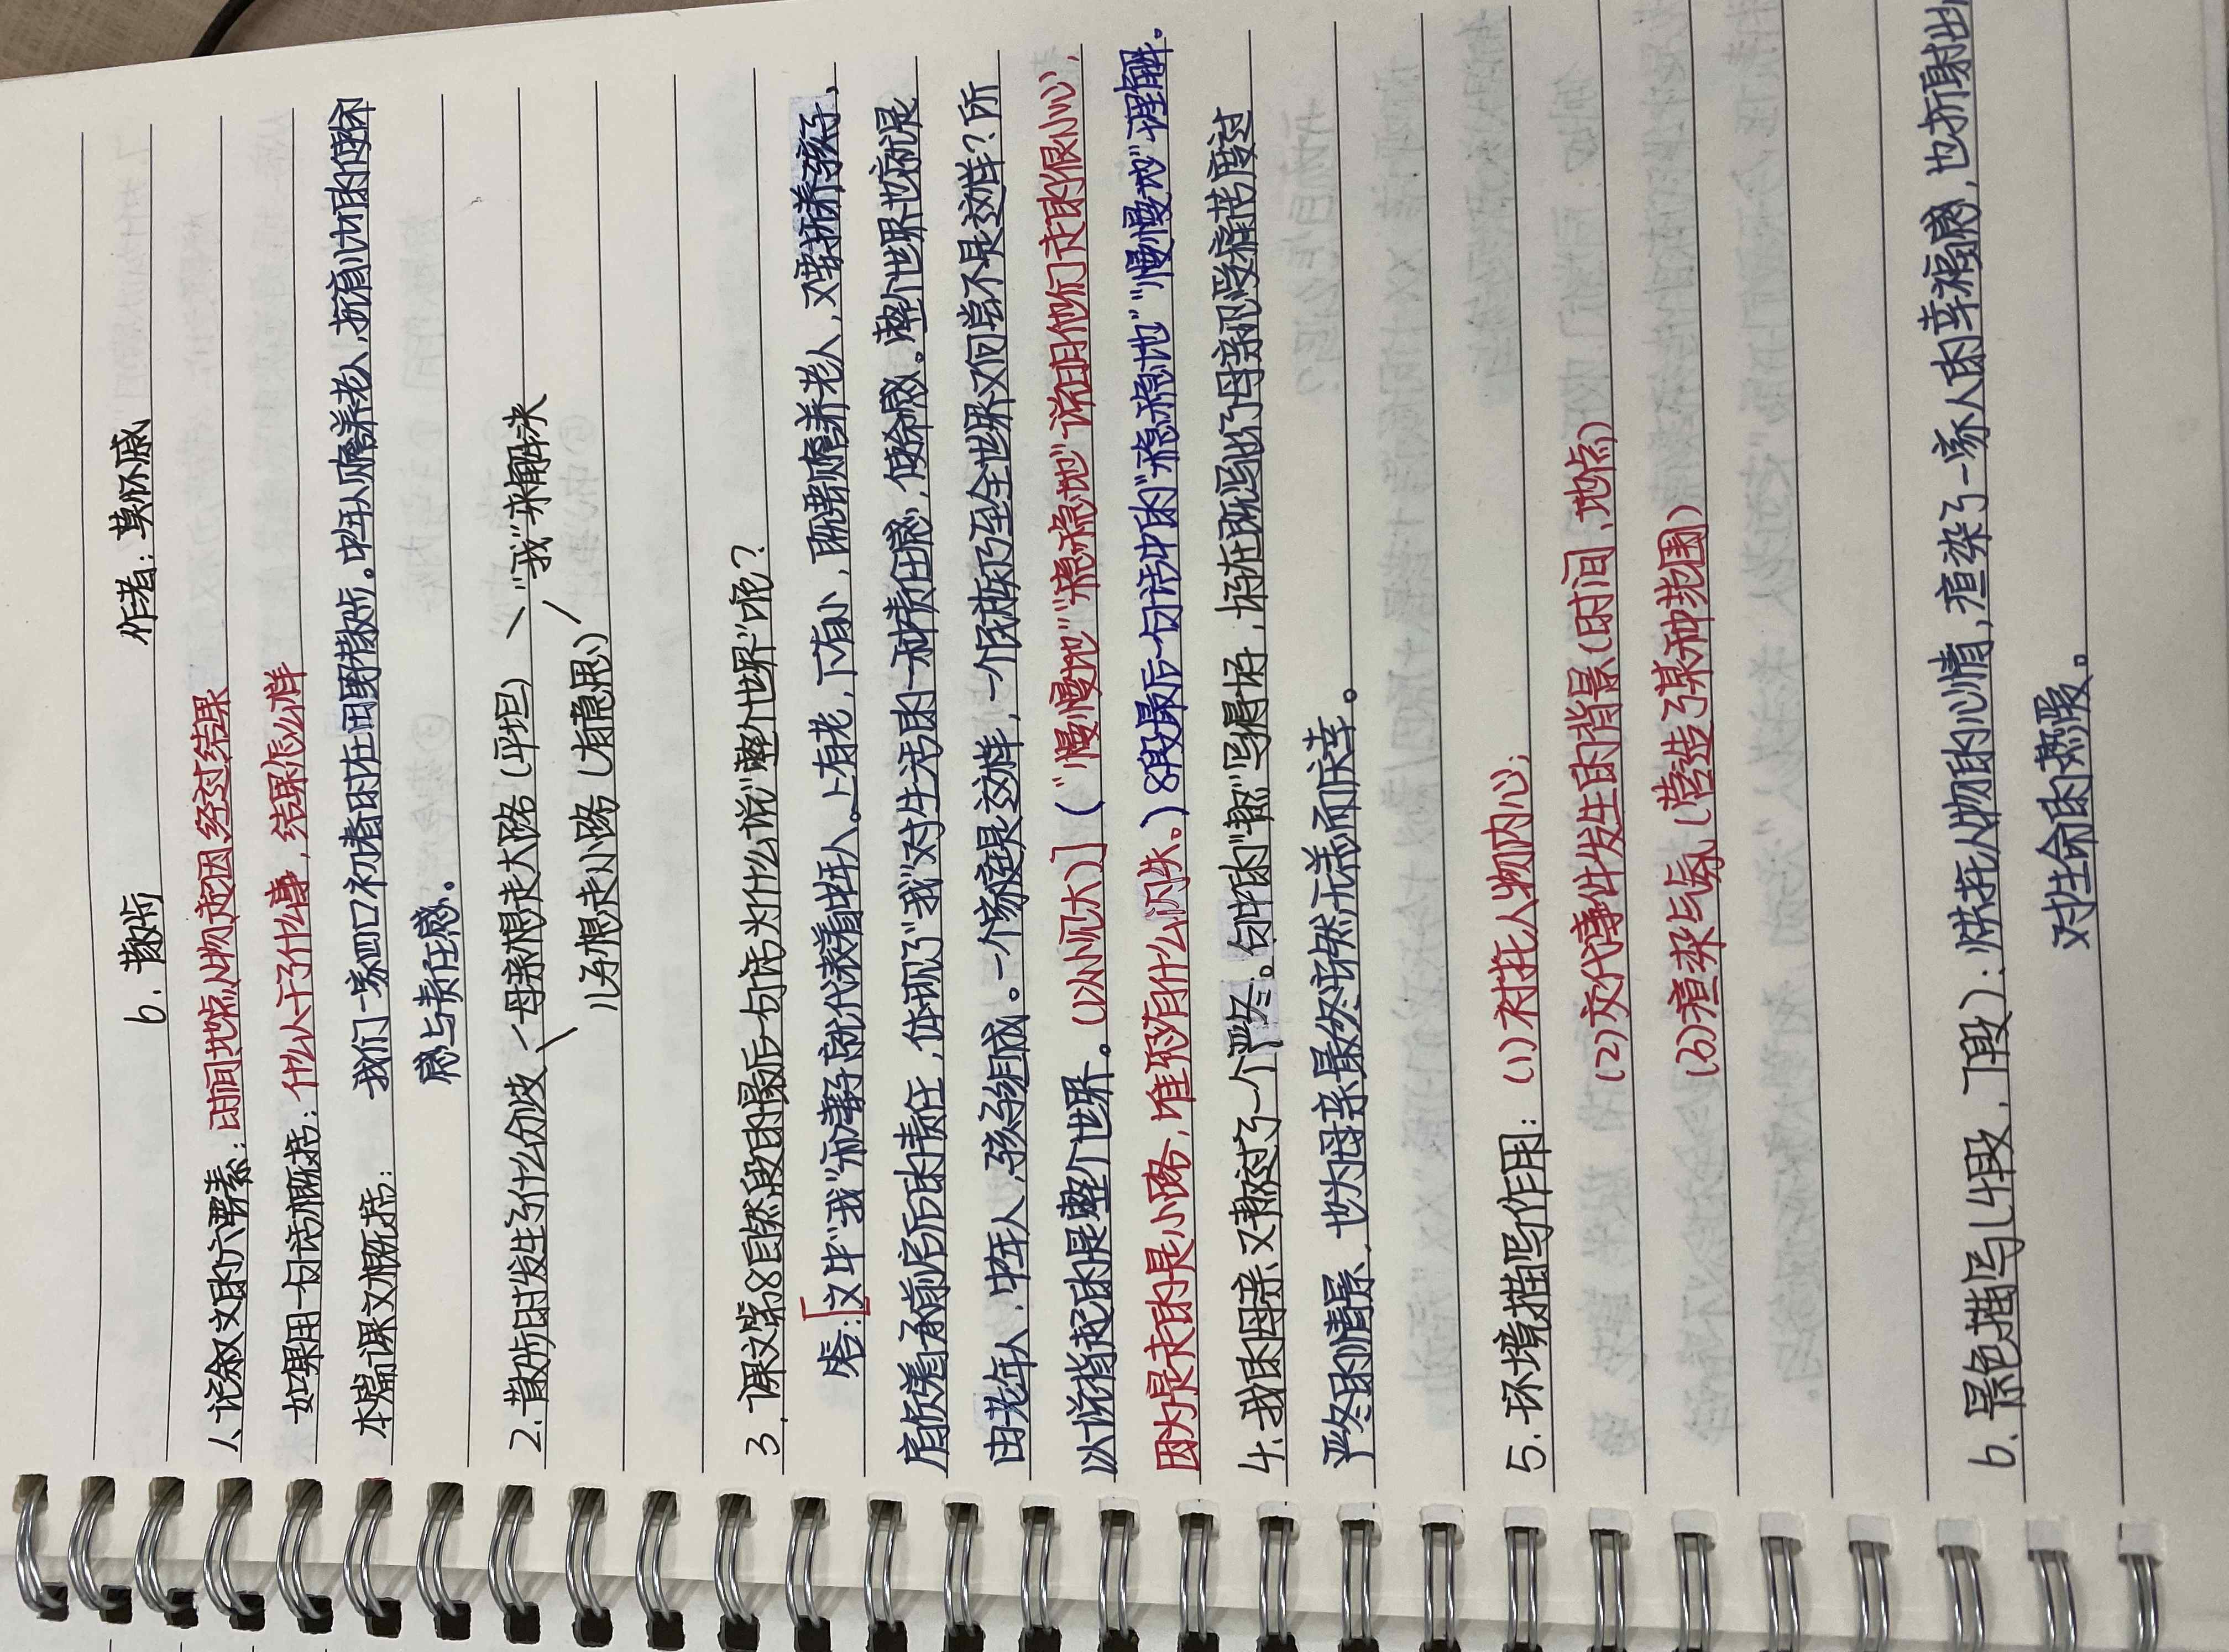 6. 散步 作者：莫怀戚
1. 记叙文的六要素：时间地点人物起因经过结果
如果用一句话概括：什么人干了什么事，结果怎么样
本篇课文概括： 我们一家四口初春时在田野散步。中年人赡养老人，抚育儿女的使命
感与责任感。
2. 散步时发生了什么分歧 母亲想走大路（平坦） "我"来解决
儿子想走小路（有意思）
3. 课文第8自然段的最后一句话为什么说"整个世界"呢？
答：[文中"我"和妻子就代表着中年人。上有老，下有小，既要赡养老人，又要抚养孩子，
肩负着承前启后的责任，体现了"我"对生活的一种责任感，使命感。整个世界也就是
由老年人，中年人，孩子组成。一个家庭是这样，一个民族乃至全世界又何尝不是这样？所
以说背起的是整个世界。（以小见大）] （"慢慢地""稳稳地"说明他们走的很小心，
因为是走的是小路，唯恐有什么闪失。）8段最后一句话中的"稳稳地""慢慢地"理解。
4. 我的母亲又熬过了一个严冬。句中的"熬"写得好，好在既写出了母亲忍受痛苦度过
严冬的情景，也为母亲最终安然无恙而庆幸。
5. 环境描写作用：（1）衬托人物内心；
（2）交代事件发生的背景（时间，地点）
（3）渲染气氛（营造了某种范围）
6. 景色描写（4段，7段）：烘托人物的心情，渲染了一家人的幸福感，也折射出
对生命的热爱。